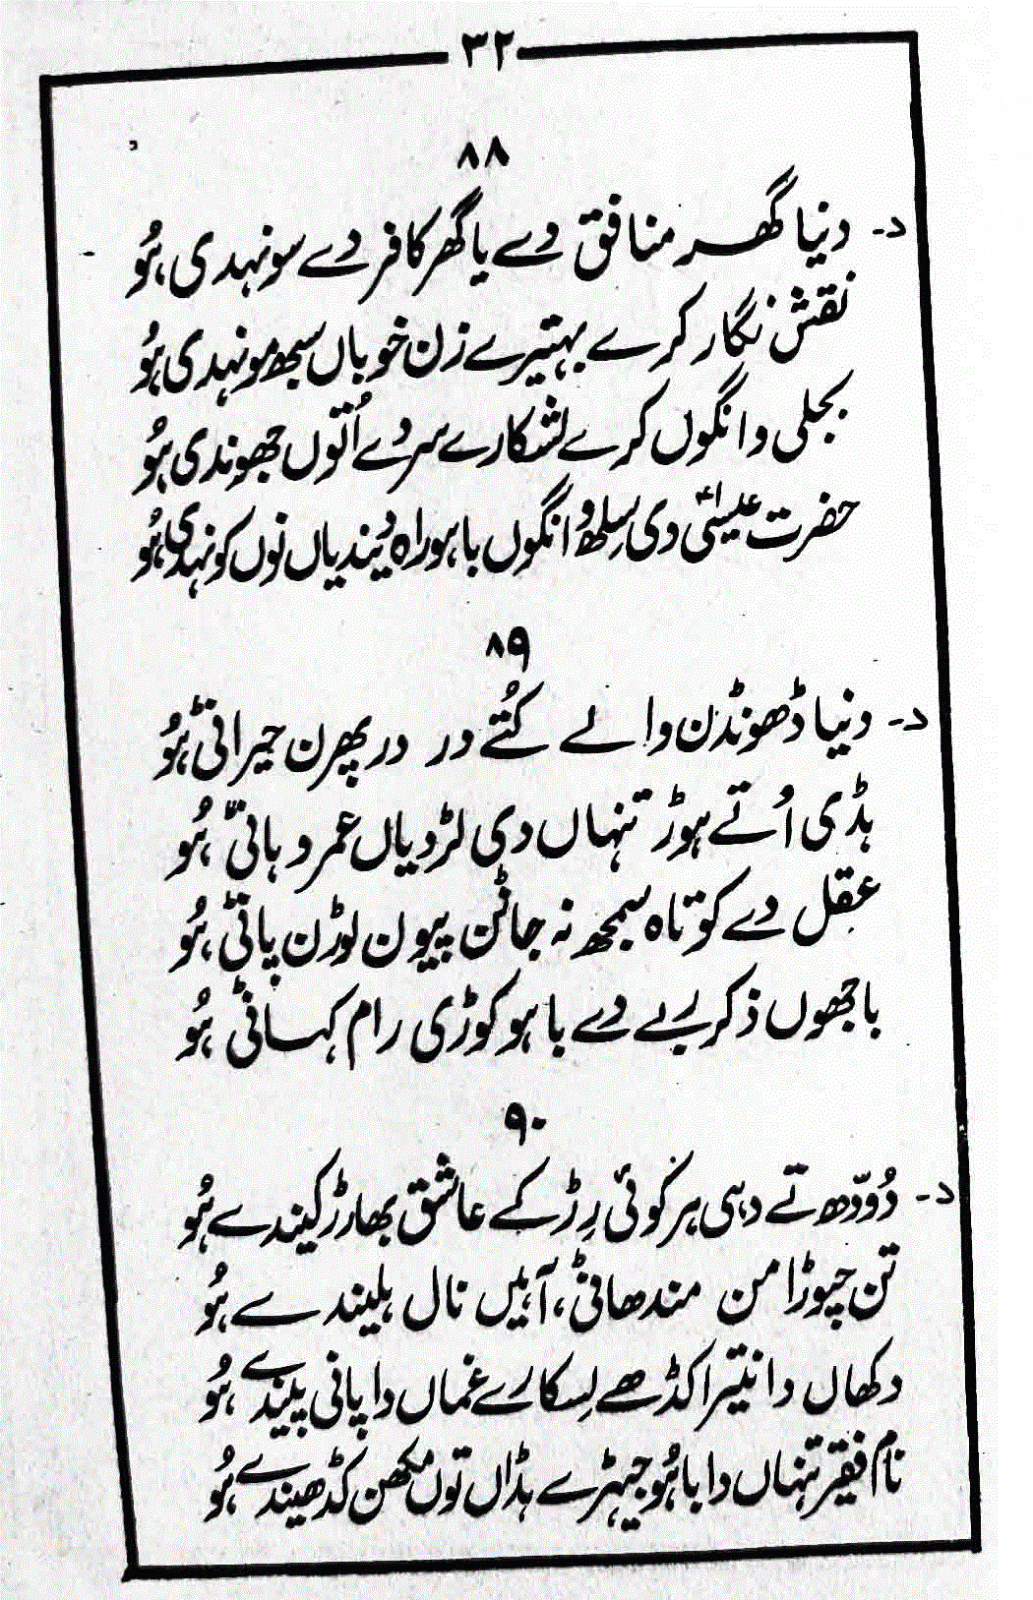 ۳۲
۸۸
د- دنیا گھر منافق دے یا گھر کافر دے سونہدی ہُو
نقش نگار کرے بہتیرے زن خوباں سبھ مونہدی ہُو
بجلی وانگوں کرے لشکارے سر دے اُتوں جھوندی ہُو
حضرت عیسیٰؑ دی سِلھ وانگوں باہو راہ ویندیاں نوں کونہدی ہُو
۸۹
د- دنیا ڈھونڈن والے کُتے در در پھرن حیرانی ہُو
ہڈی اُتے ہوڑ تنہاں دی لڑدیاں عمر وہانی ہُو
عقل دے کوتاہ سمجھ نہ جانن پیون لوڑن پانی ہُو
باجھوں ذکر ربے دے باہو کوڑی رام کہانی ہُو
۹۰
د- دُودّھ تے دہی ہر کوئی رِڑکے عاشق بھا رڑکیندے ہُو
تن چٹورا من مندھانی، آہیں نال ہلیندے ہُو
دکھاں دا نیترا کڈھے لِسکارے غماں دا پانی پیندے ہُو
نام فقیر تنہاں دا باہُو جیہڑے ہڈاں توں مکھن کڈھیندے ہُو